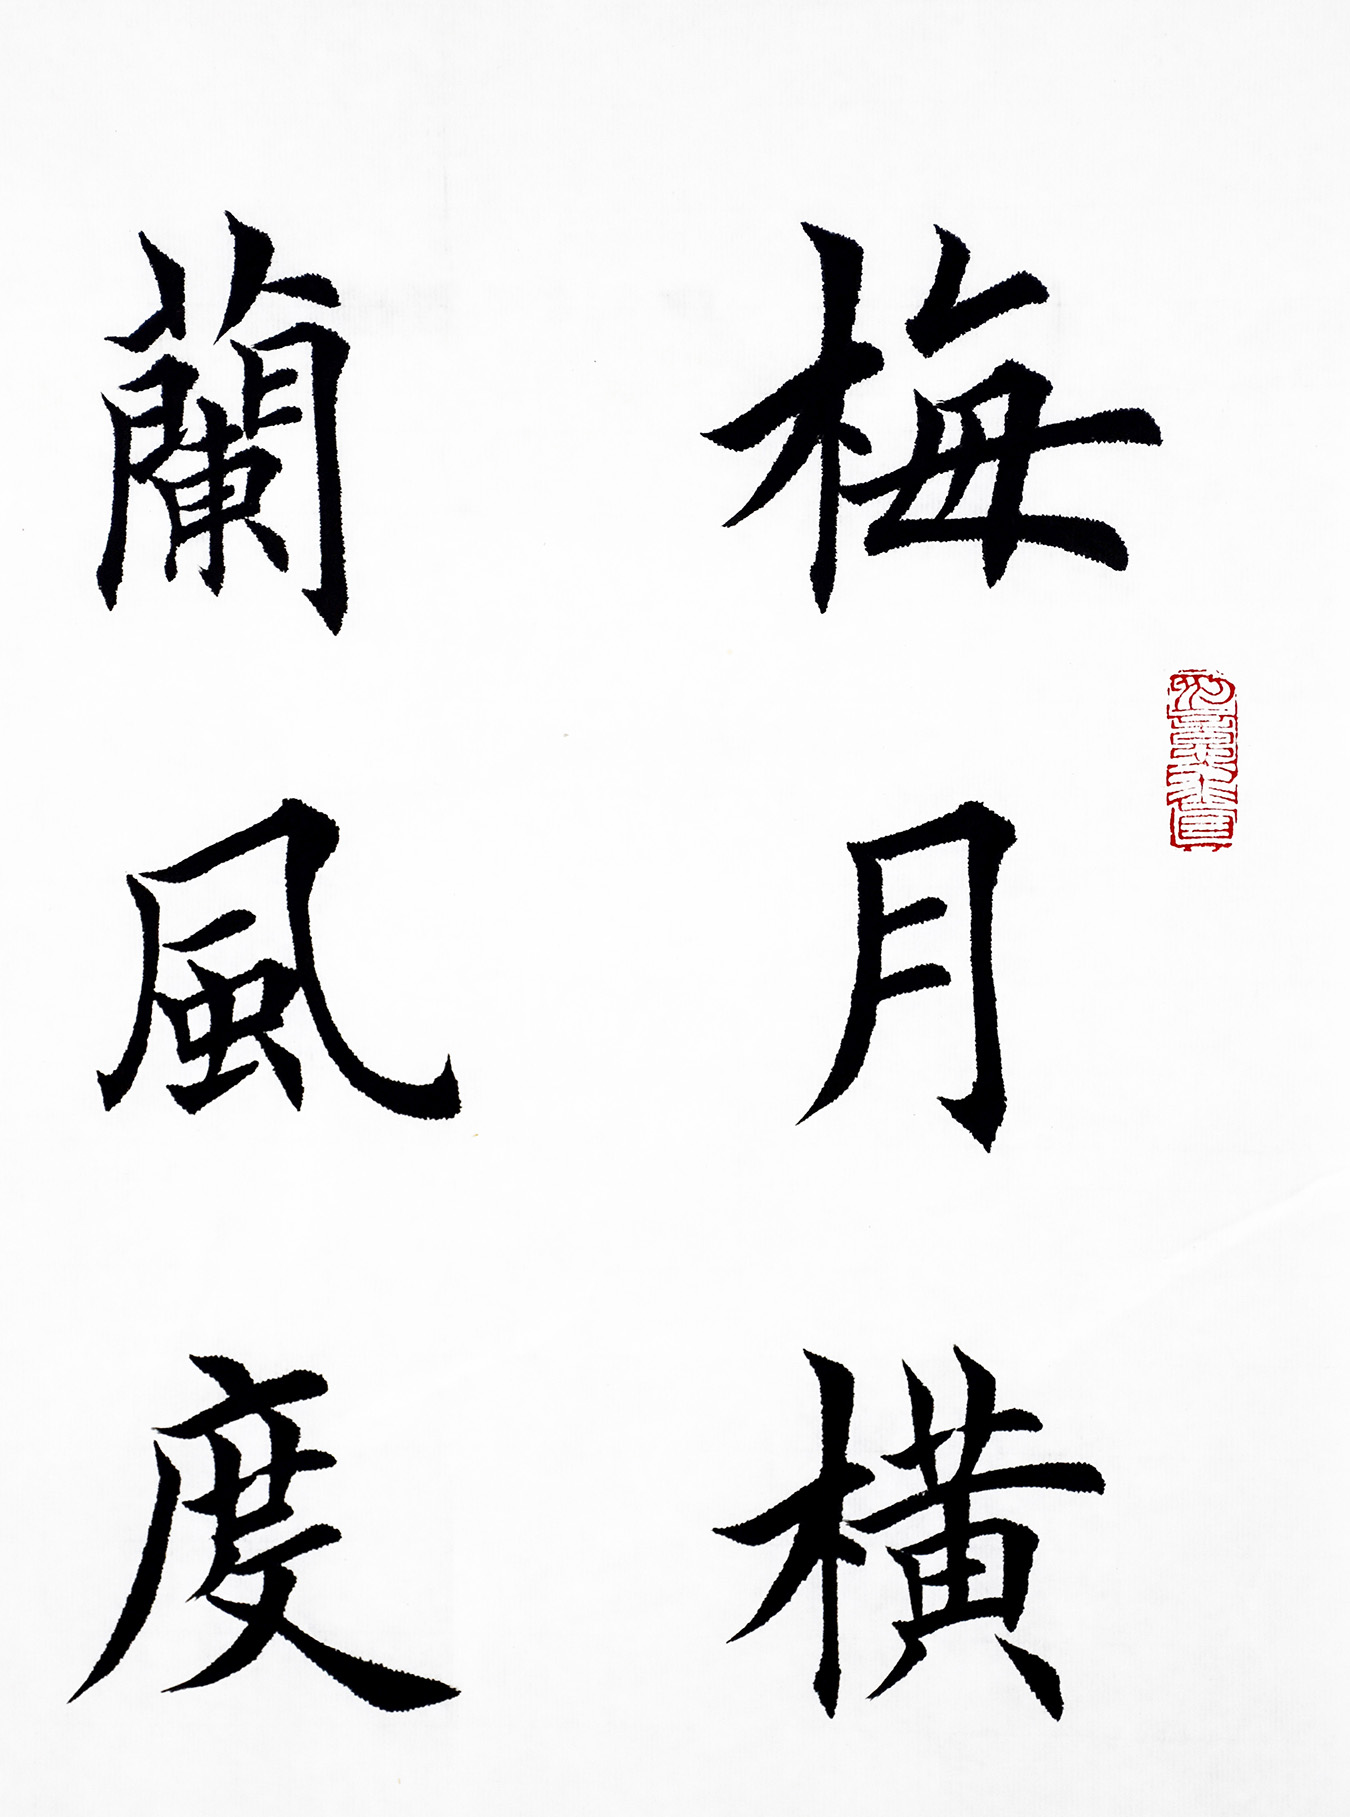 梅月橫
蘭風度